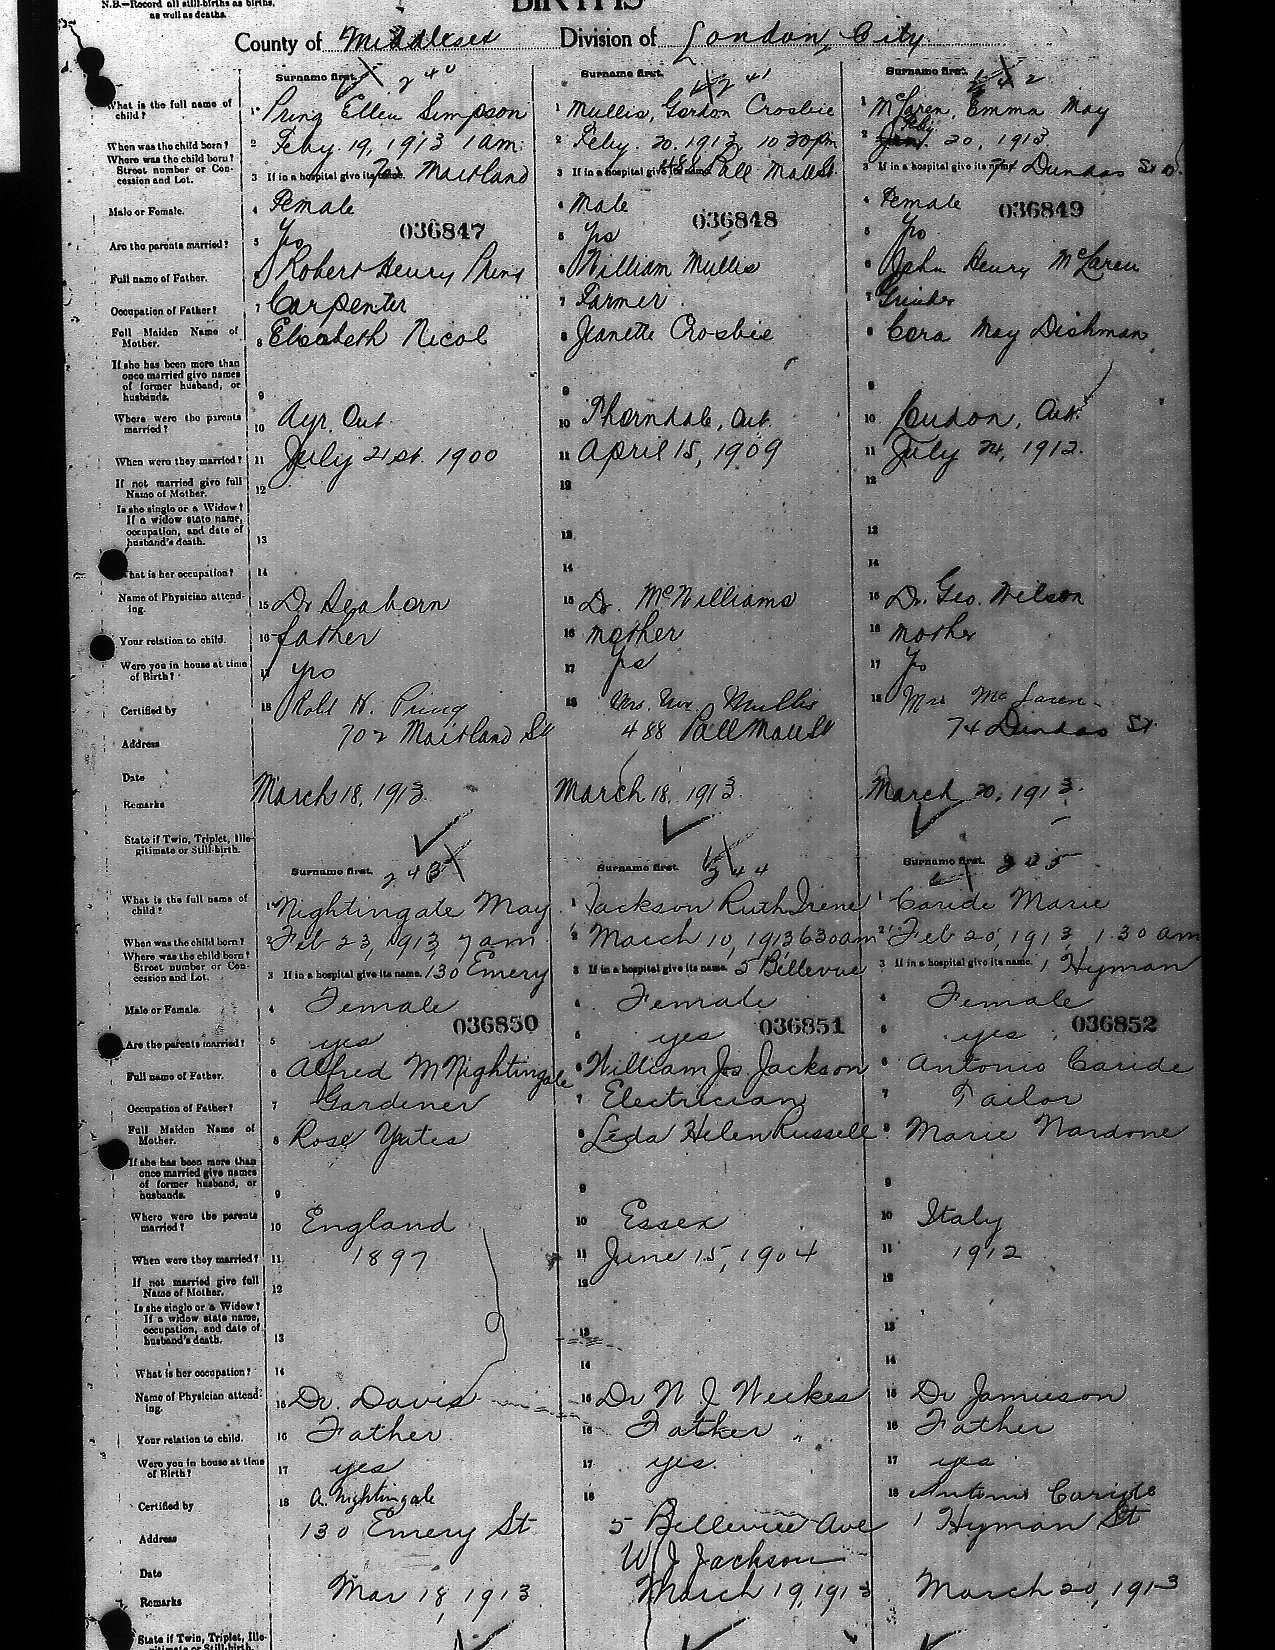 N.B.—Record all still-births as births, as well as deaths.
BIRTHS
County of Middlesex Division of London, City
Surname first. 240
Surname first. 241
Surname first. 242
What is the full name of child? 1 Pring Ellen Simpson
1 Mullis, Gordon Crosbie
1 McLaren, Emma May
When was the child born? 2 Feby. 19, 1913 1 am.
2 Feby. 20. 1913, 10 30 pm
2 Feby 20, 1913.
Where was the child born? Street number or Concession and Lot. 3 If in a hospital give its name. 702 Maitland
3 If in a hospital give its name. 488 Pall Mall St.
3 If in a hospital give its name. 74 Dundas St W.
Male or Female. 4 Female
4 Male
4 Female
036847
036848
036849
Are the parents married? 5 Yes
5 yes
5 Yes
Full name of Father. 6 Robert Henry Pring
6 William Mullis
6 John Henry McLaren
Occupation of Father? 7 Carpenter
7 Farmer
7 Grinder
Full Maiden Name of Mother. 8 Elizabeth Nicol
8 Jeanette Crosbie
8 Cora May Dishman
If she has been more than once married give names of former husband, or husbands. 9
9
9
Where were the parents married? 10 Ayr, Ont.
10 Thorndale, Ont.
10 London, Ont.
When were they married? 11 July 21st. 1900
11 April 15, 1909
11 July 24, 1912.
If not married give full Name of Mother. 12
12
12
Is she single or a Widow? If a widow state name, occupation, and date of husband's death. 13
13
13
What is her occupation? 14
14
14
Name of Physician attending. 15 Dr Seaborn
15 Dr. McWilliams
15 Dr. Geo. Wilson
Your relation to child. 16 father
16 mother
16 mother
Were you in house at time of Birth? 17 yes
17 yes
17 Yes
Certified by 18 Robt H. Pring
18 Mrs. Wm. Mullis
18 Mrs McLaren
Address 702 Maitland St
488 Pall Mall St
74 Dundas St
Date
Remarks March 18, 1913.
March 18, 1913.
March 20, 1913.
State if Twin, Triplet, Illegitimate or Still-birth.
Surname first. 243
Surname first. 244
Surname first. 245
What is the full name of child? 1 Nightingale May
1 Jackson Ruth Irene
1 Caride Marie
When was the child born? 2 Feb 23, 1913, 7 am
2 March 10, 1913 630 am
2 Feb 20, 1913, 1 30 am
Where was the child born? Street number or Concession and Lot. 3 If in a hospital give its name. 130 Emery
3 If in a hospital give its name. 5 Bellevue
3 If in a hospital give its name. 1 Hyman
Male or Female. 4 Female
4 Female
4 Female
036850
036851
036852
Are the parents married? 5 yes
5 yes
5 yes
Full name of Father. 6 Alfred M Nightingale
6 William Jos. Jackson
6 Antonio Caride
Occupation of Father? 7 Gardener
7 Electrician
7 Tailor
Full Maiden Name of Mother. 8 Rose Yates
8 Leda Helen Russell
8 Marie Nardone
If she has been more than once married give names of former husband, or husbands. 9
9
9
Where were the parents married? 10 England
10 Essex
10 Italy
When were they married? 11 1897
11 June 15, 1904
11 1912
If not married give full Name of Mother. 12
12
12
Is she single or a Widow? If a widow state name, occupation, and date of husband's death. 13
13
13
What is her occupation? 14
14
14
Name of Physician attending. 15 Dr. Davis
15 Dr W J Weekes
15 Dr Jamieson
Your relation to child. 16 Father
16 Father
16 Father
Were you in house at time of Birth? 17 yes
17 yes.
17 yes
Certified by 18 A. Nightingale
18
18 Antonio Caride
Address 130 Emery St
5 Bellevue Ave
1 Hyman St
Date
W J Jackson
Remarks Mar 18, 1913
March 19, 1913
March 20, 1913
State if Twin, Triplet, Illegitimate or Still-birth.